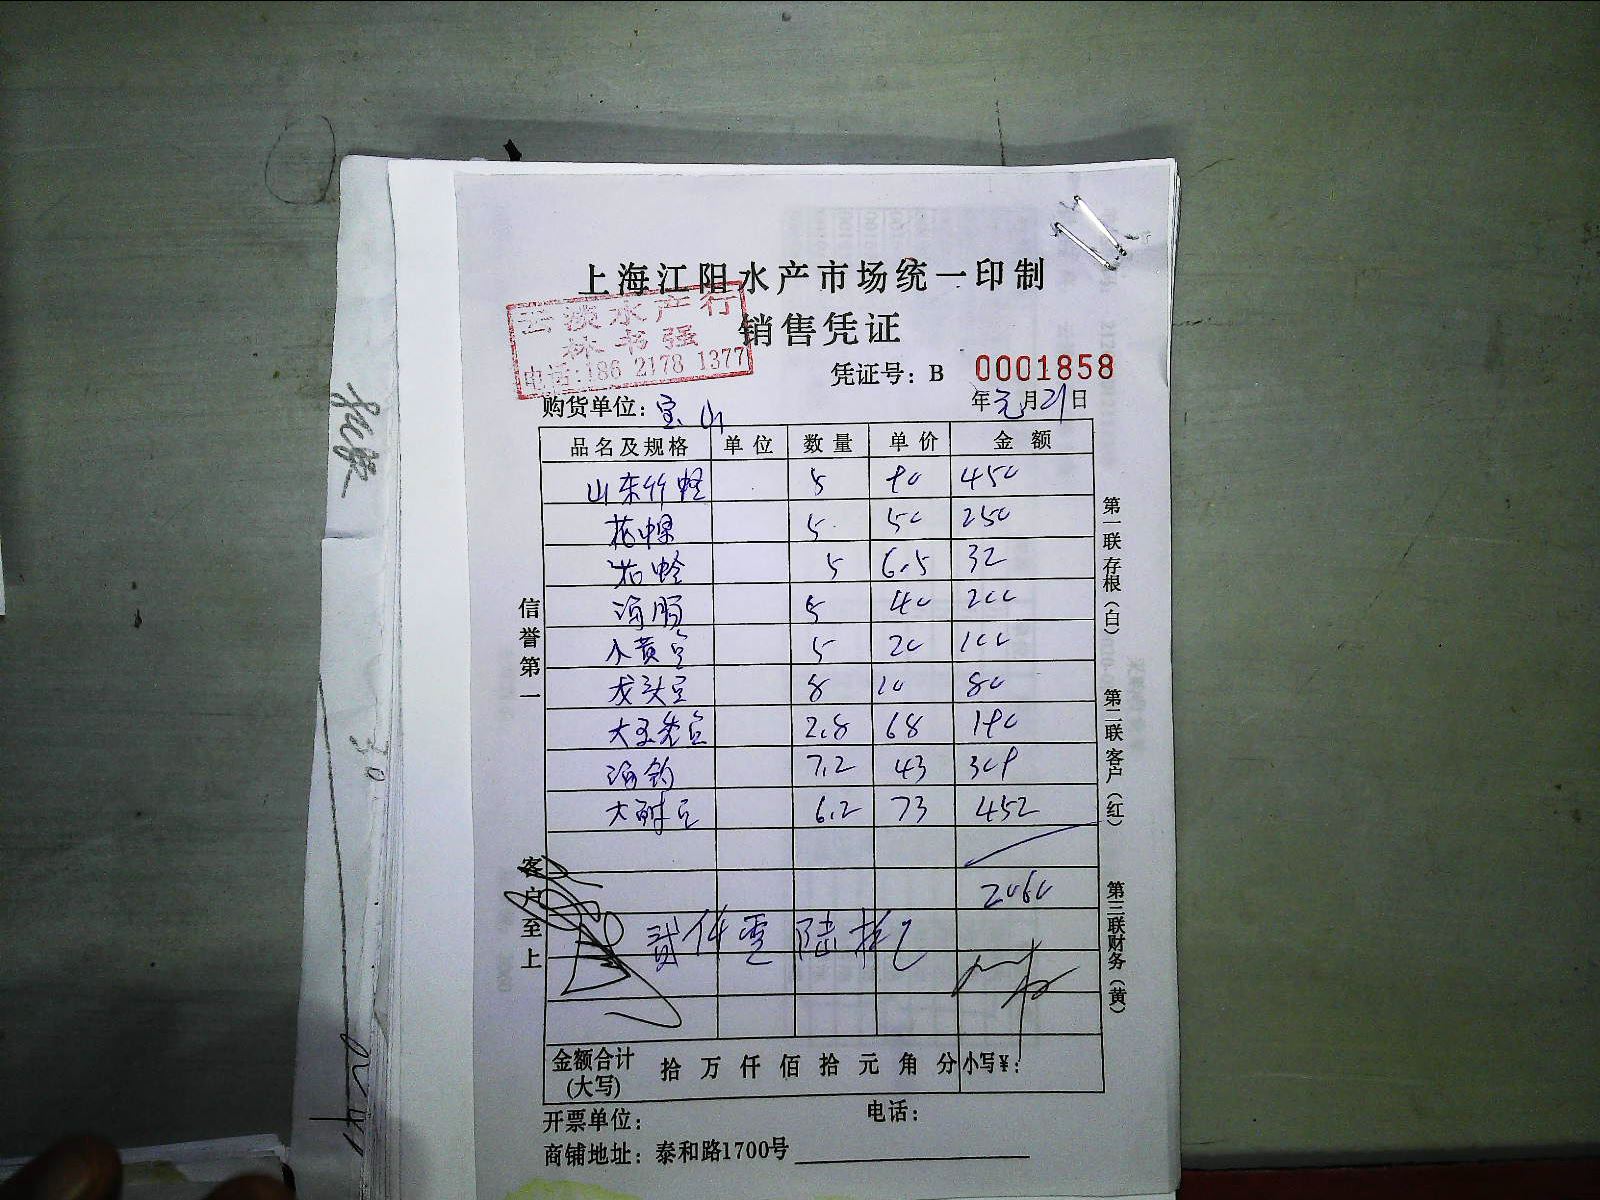 上海江阳水产市场统一印制
销售凭证
云淡水产行
林书强
电话:186 2178 1377
凭证号：B 0001858
购货单位：宝山 年元月21日
品名及规格 单位 数量 单价 金额
山东竹蛏 5 90 450
花螺 5 50 250
花蛤 5 6.5 32
海肠 5 40 200
小黄鱼 5 20 100
龙头鱼 8 10 80
2.8 68 190
海钓 7.2 43 309
6.2 73 452
2060
贰仟零陆拾元
金额合计(大写) 拾 万 仟 佰 拾 元 角 分 小写¥：
开票单位： 电话：
商铺地址：泰和路1700号
信誉第一
客户至上
第一联存根（白）
第二联客户（红）
第三联财务（黄）
30